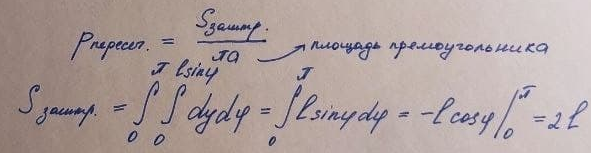 Pпересеч. = Sзаштр. / πa → площадь прямоугольника
Sзаштр. = ∫₀^π ∫₀^(l sinφ) dy dφ = ∫₀^π l sinφ dφ = -l cosφ |₀^π = 2l